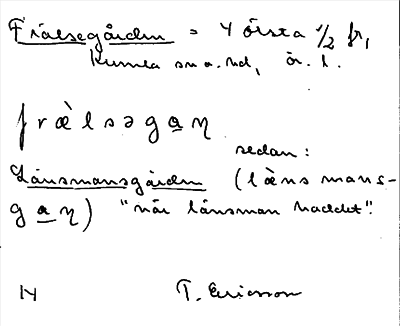 Frälsegården = Y örsta 1/2 fr,
Kumla sn o. hd, ör. l.
frælsəgaɳ
sedan:
Länsmansgården (lænsmans-
gaɳ) "när länsman haddet".
14
T. Ericsson